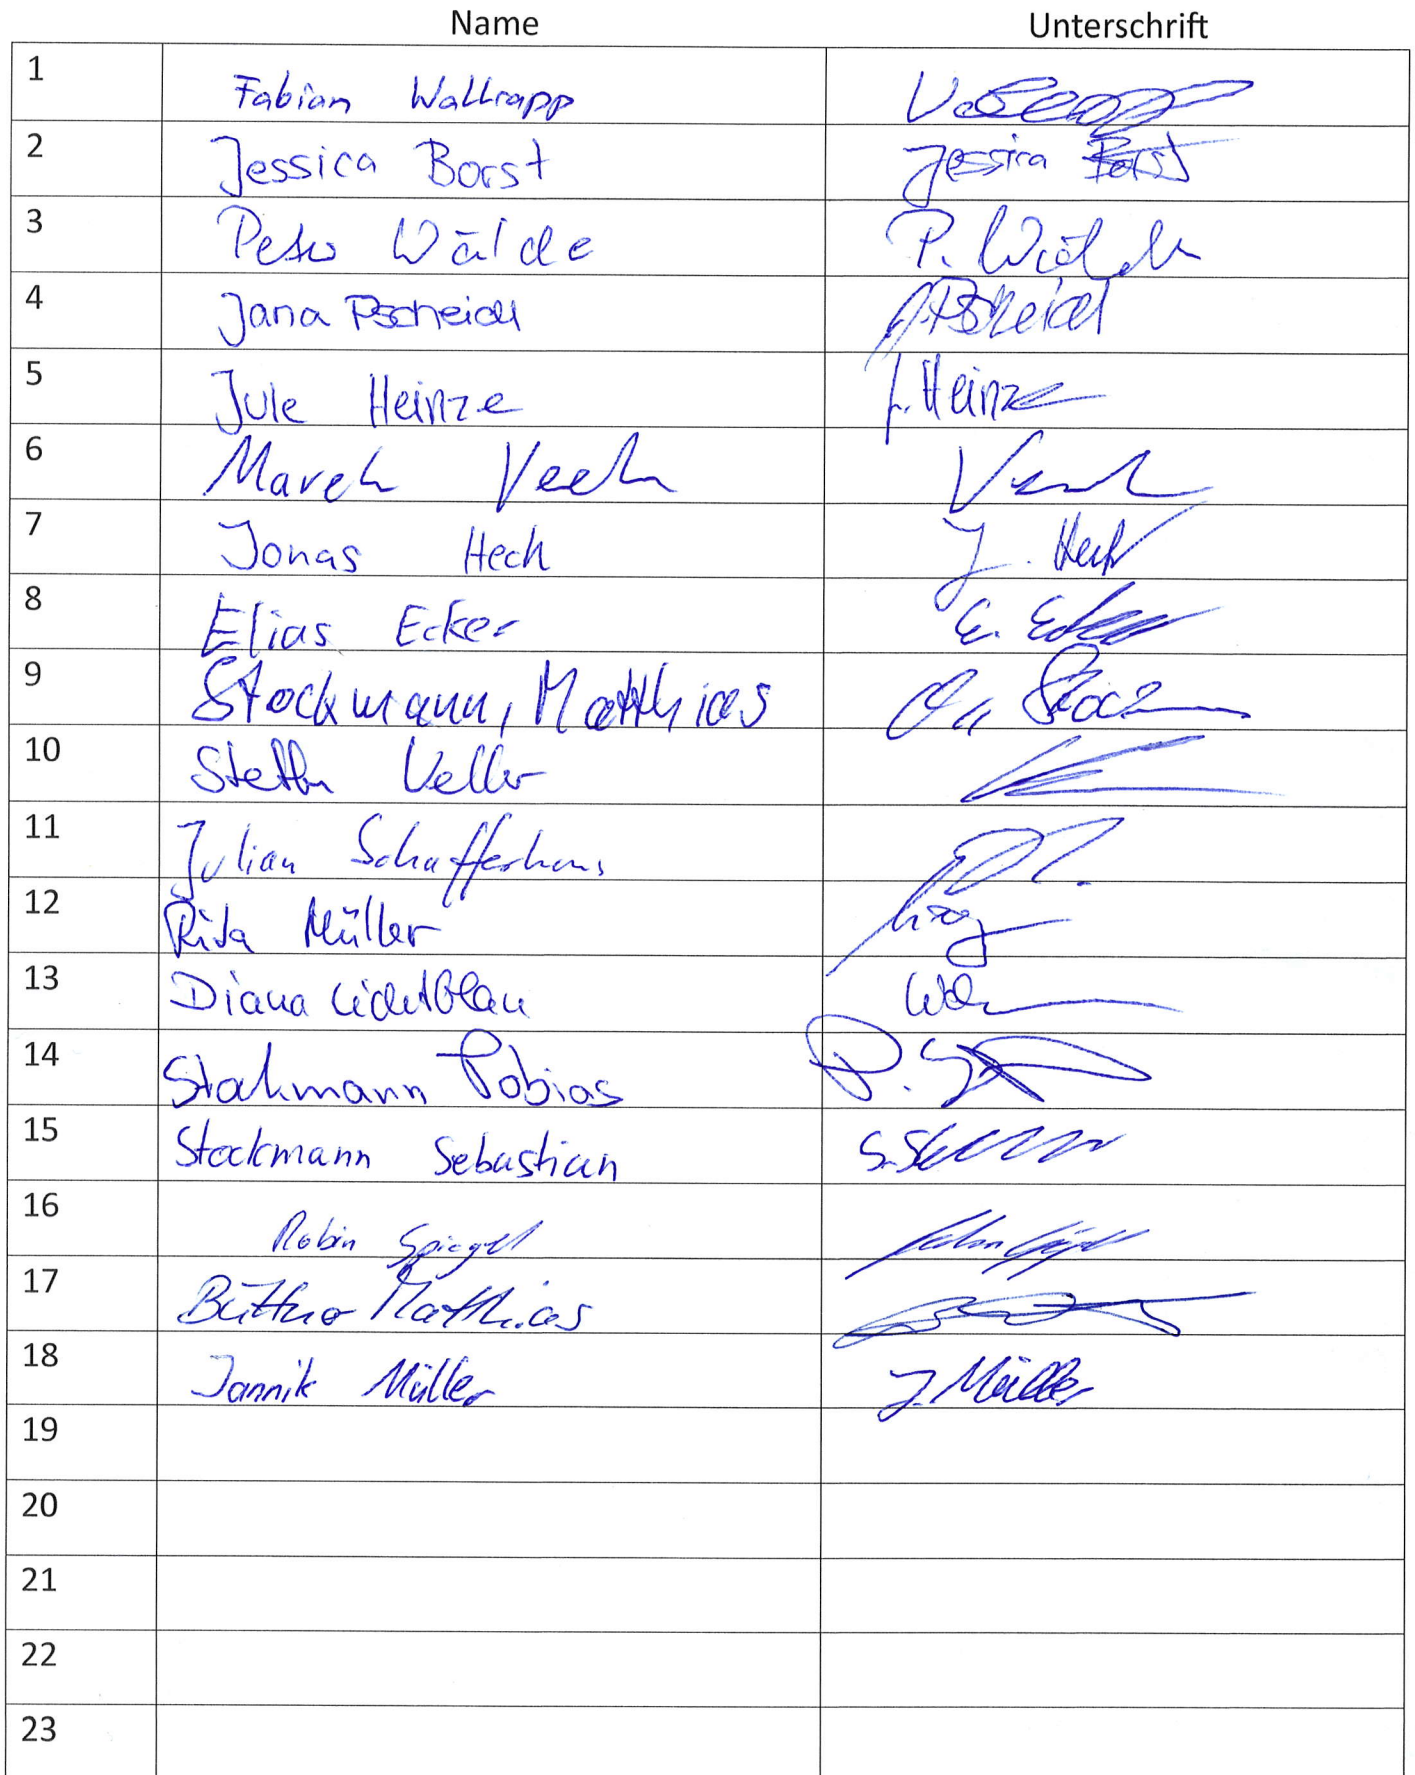 Name Unterschrift
1 Fabian Wallrapp
2 Jessica Borst Jessica Borst
3 Peter Wälde P. Wälde
4 Jana Pscheidl J. Pscheidl
5 Jule Heinze J. Heinze
6 Marek Veeh Veeh
7 Jonas Hech J. Hech
8 Elias Ecker E. Ecker
9 Stockmann, Matthias
10 Keller
11 Julian
12 Rita Müller
13 Diana Lichtblau
14 Stockmann Tobias
15 Stockmann Sebastian
16 Robin Spiegel
17 Büttner Matthias
18 Jannik Müller J. Müller
19
20
21
22
23